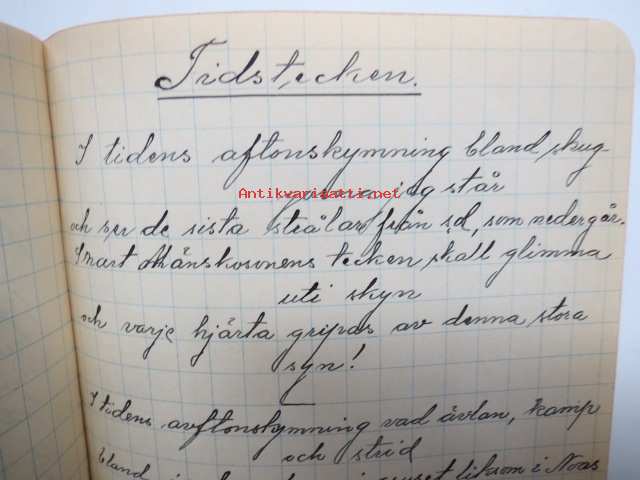 Tidstecken.
I tidens aftonskymning bland skug-
jag står
Antikvariaatti.net
och ser de sista strålar från sol, som nedergår.
Snart Människosonens tecken skall glimma
uti skyn
och varje hjärta gripas av denna stora
syn!
I tidens avftonskymning vad ävlan, kamp
och strid
bland liksom i Noas